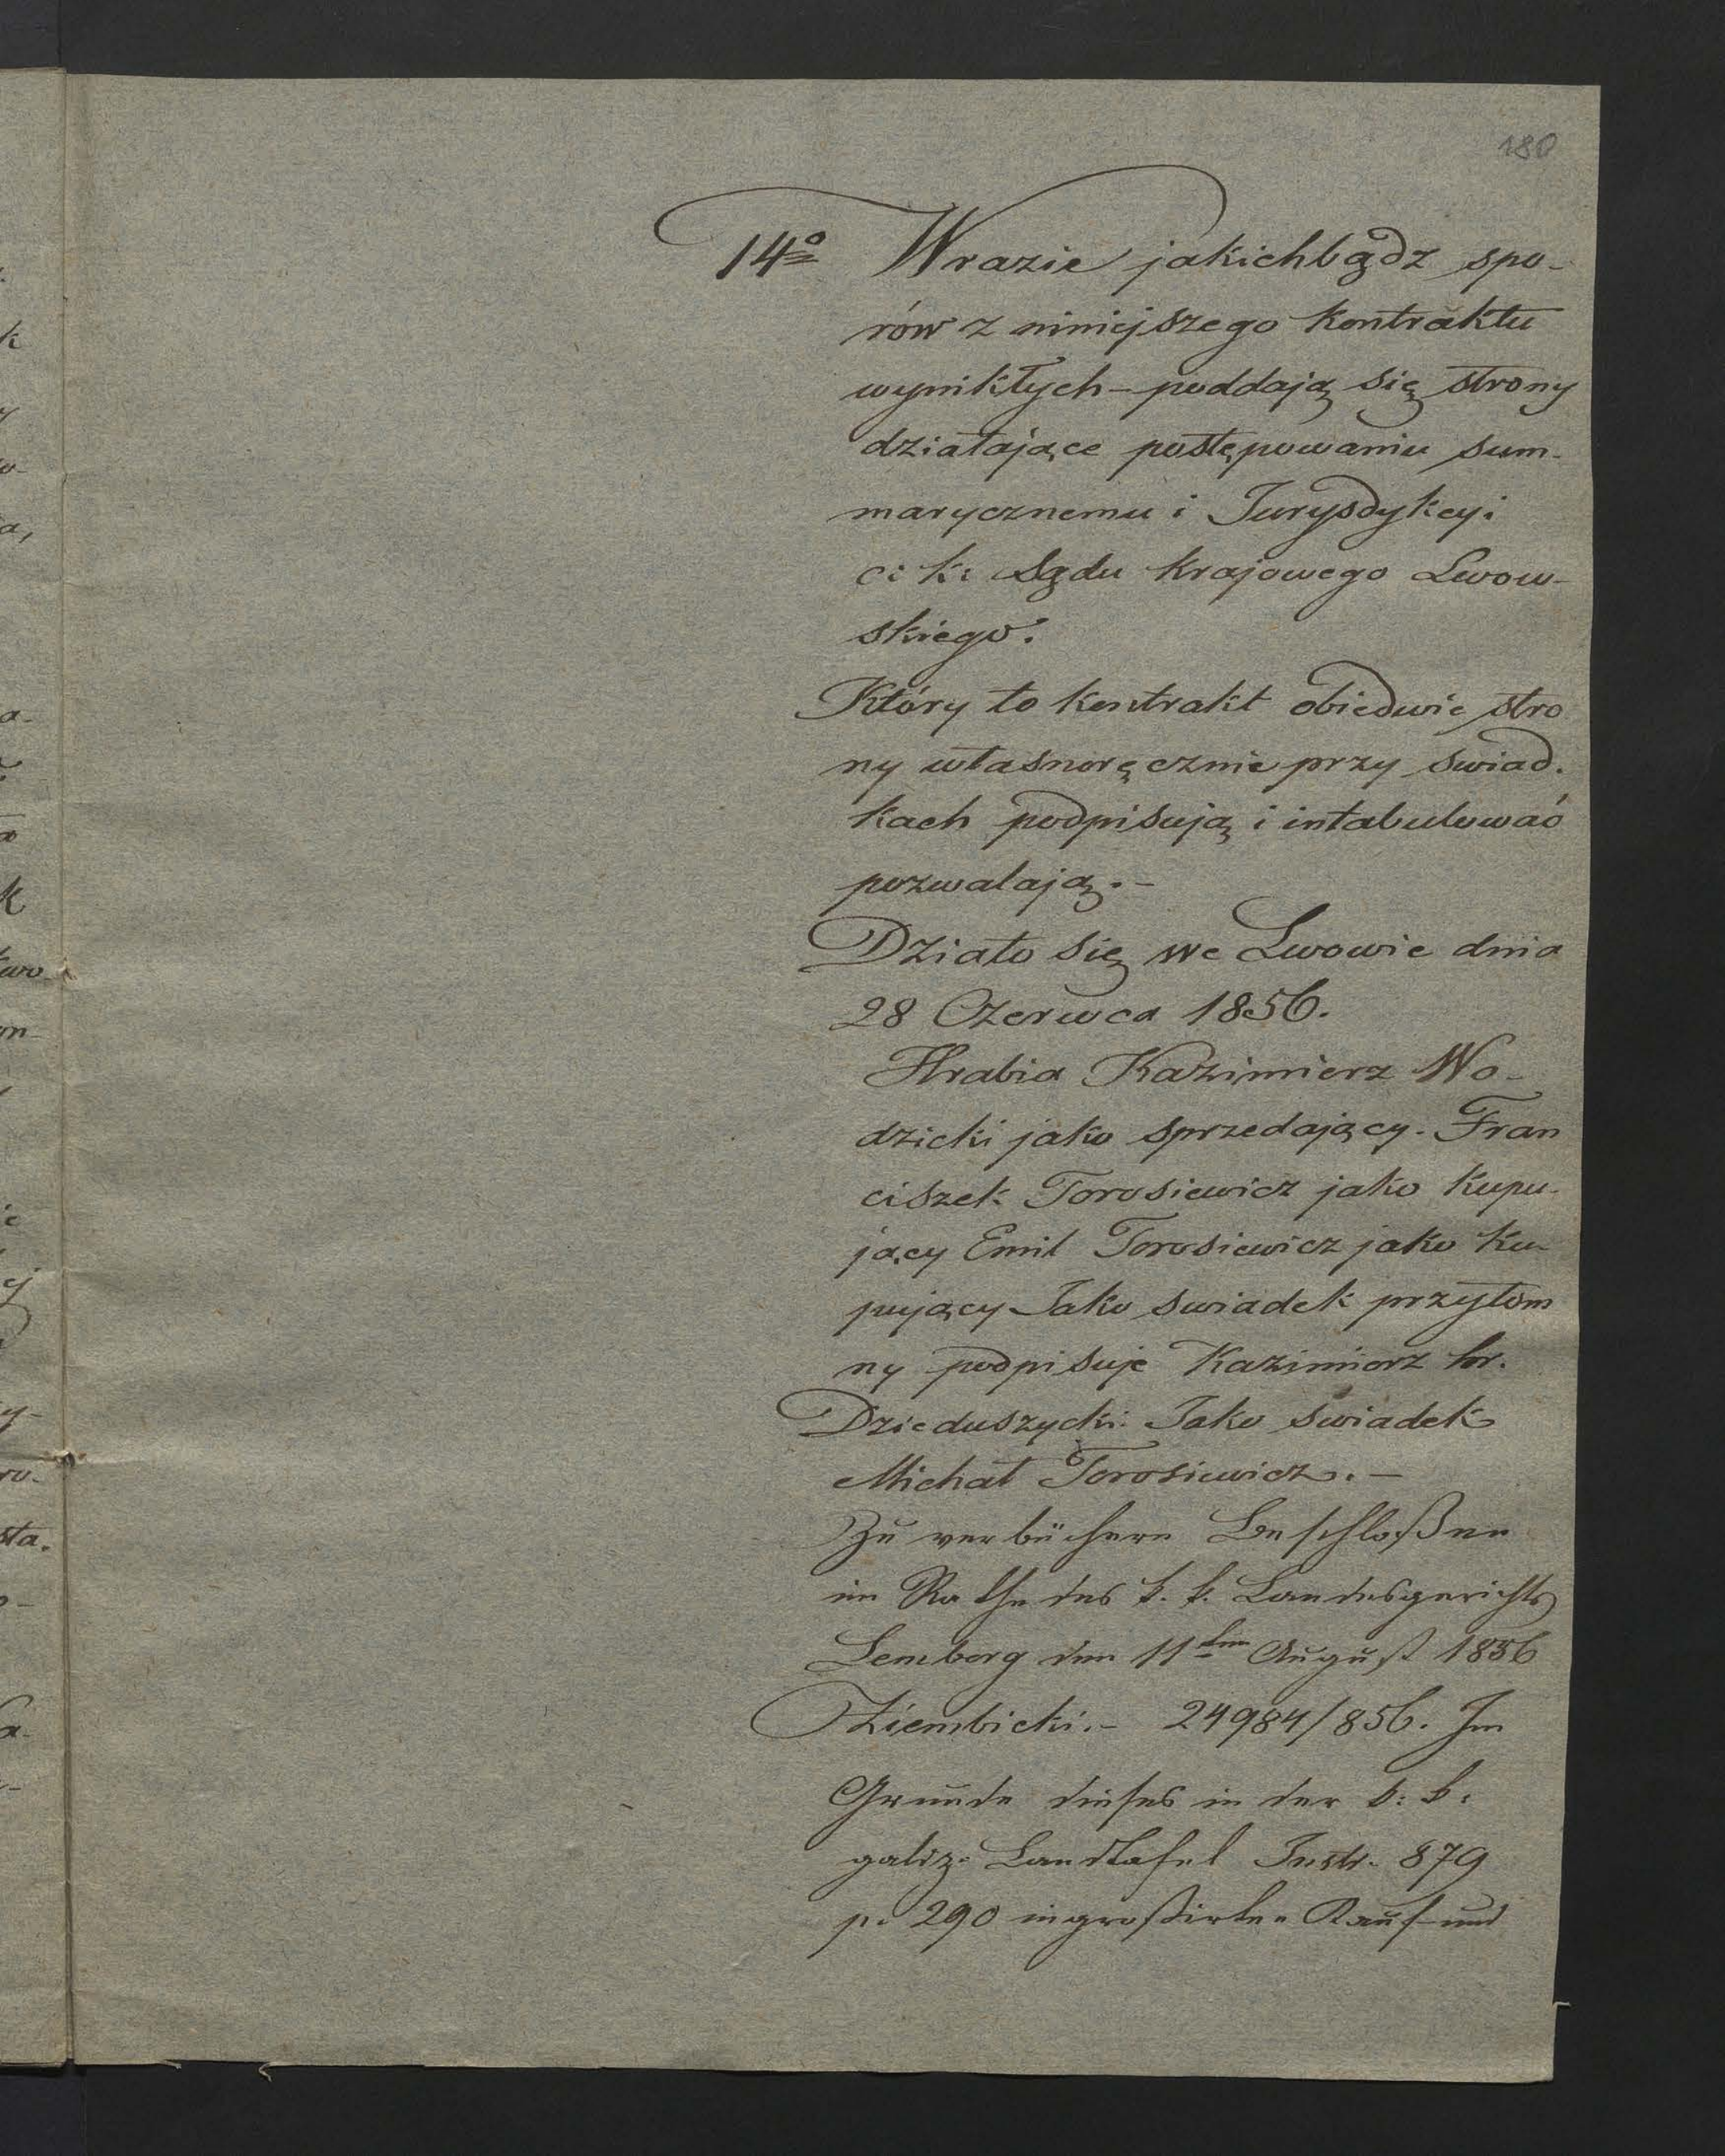 180
14º Wrazie jakichbądz spo-
rów z niniejszego kontraktu
wynikłych – poddają się strony
działające postępowaniu sum-
marycznemu i Jurysdykcyi
c: k: Sądu krajowego Lwow-
skiego.
Który to kontrakt obiedwie stro
ny własnoręcznie przy swiad-
kach podpisują i intabulować
pozwalają. –
Działo się we Lwowie dnia
28 Czerwca 1856.
Hrabia Kazimierz Wo-
dzicki jako sprzedający. Fran
ciszek Torosiewicz jako kupu-
jący Emil Torosiewicz jako ku-
pujący Jako swiadek przytom
ny podpisuje Kazimierz hr.
Dzieduszycki. Jako świadek
Michał Torosiewicz. –
Zu verbüchern Beschloßen
im Rathe des k. k. Landesgerichts
Lemberg den 11ten August 1856
Ziembicki. – 24984/856. Im
Grunde dieses in der k: k:
galiz. Landtafel Instr. 879
p. 290 ingroßirten Kauf und